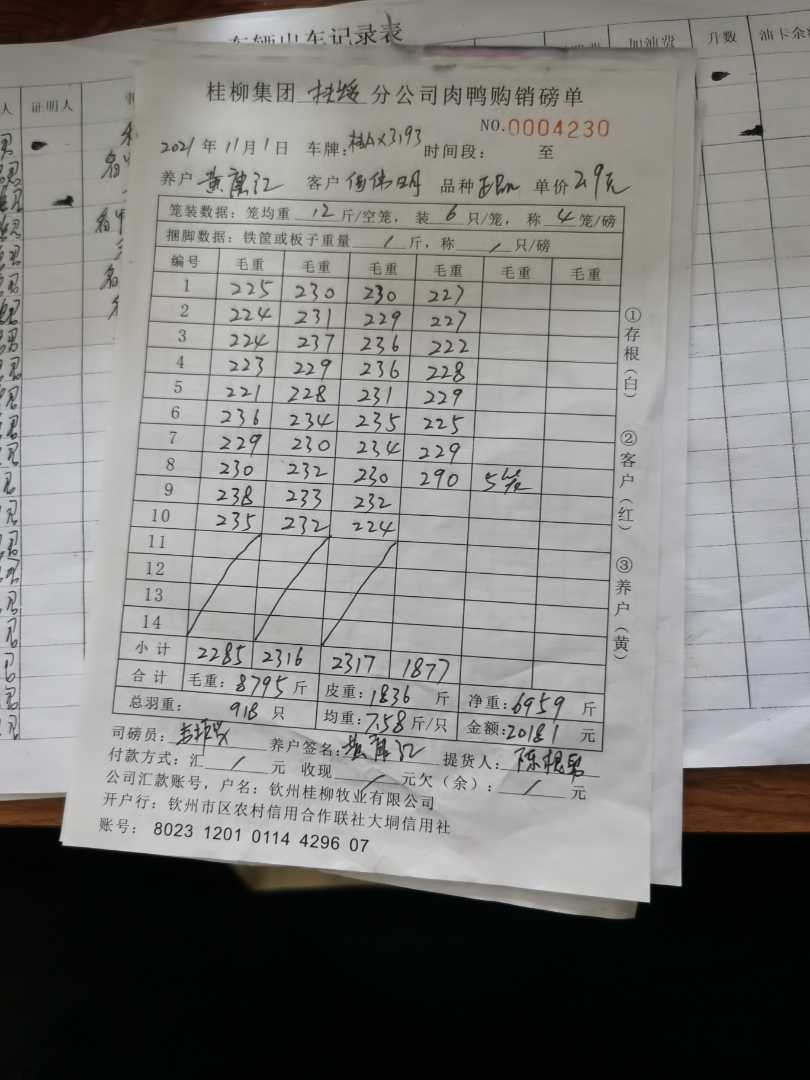 车辆出车记录表
证明人
加油费 升数 油卡余
桂柳集团 分公司肉鸭购销磅单
NO.0004230
2021年11月1日 车牌:桂AX3193 时间段: 至
养户 黄 江 客户 伟明 品种 单价 2.9元
笼装数据:笼均重 12 斤/空笼,装 6 只/笼,称 4 笼/磅
捆脚数据:铁筐或板子重量 / 斤,称 / 只/磅
编号 毛重 毛重 毛重 毛重 毛重 毛重
1 225 230 230 227
2 224 231 229 227
3 224 237 236 222
4 223 229 236 228
5 221 228 231 229
6 236 234 235 225
7 229 230 234 229
8 230 232 230 290 5
9 238 233 232
10 235 232 224
11
12
13
14
小计 2285 2316 2317 1877
合计 毛重:8795斤 皮重:1836斤 净重:6959斤
总羽重: 918只 均重:7.58斤/只 金额:20181元
司磅员: 养户签名:黄 江 提货人:陈
付款方式:汇 / 元 收现 / 元欠(余): / 元
公司汇款账号,户名:钦州桂柳牧业有限公司
开户行:钦州市区农村信用合作联社大垌信用社
账号:8023 1201 0114 4296 07
①存根(白) ②客户(红) ③养户(黄)